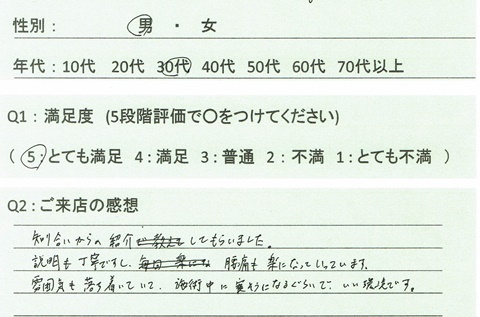 性別： 男 ・ 女
年代：10代 20代 30代 40代 50代 60代 70代以上
Q1：満足度 (5段階評価で〇をつけてください)
（ 5：とても満足 4：満足 3：普通 2：不満 1：とても不満 ）
Q2：ご来店の感想
知り合いからの紹介で教えてしてもらいました。
説明も丁寧ですし、毎回楽にな 腰痛も楽になっていっています。
雰囲気も落ち着いていて、施術中に寝そうになるぐらいで、いい環境です。